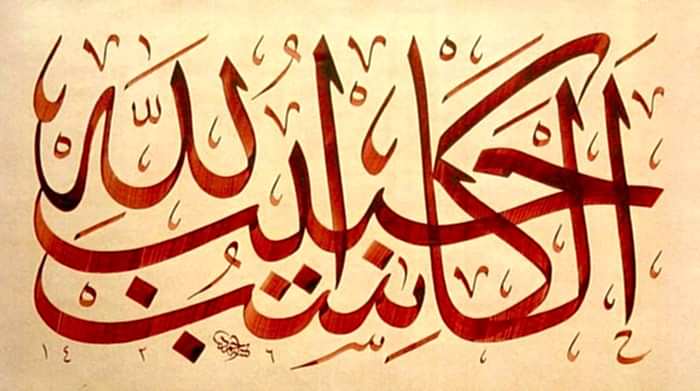 الكاسب حبيب الله
١٤٢٦